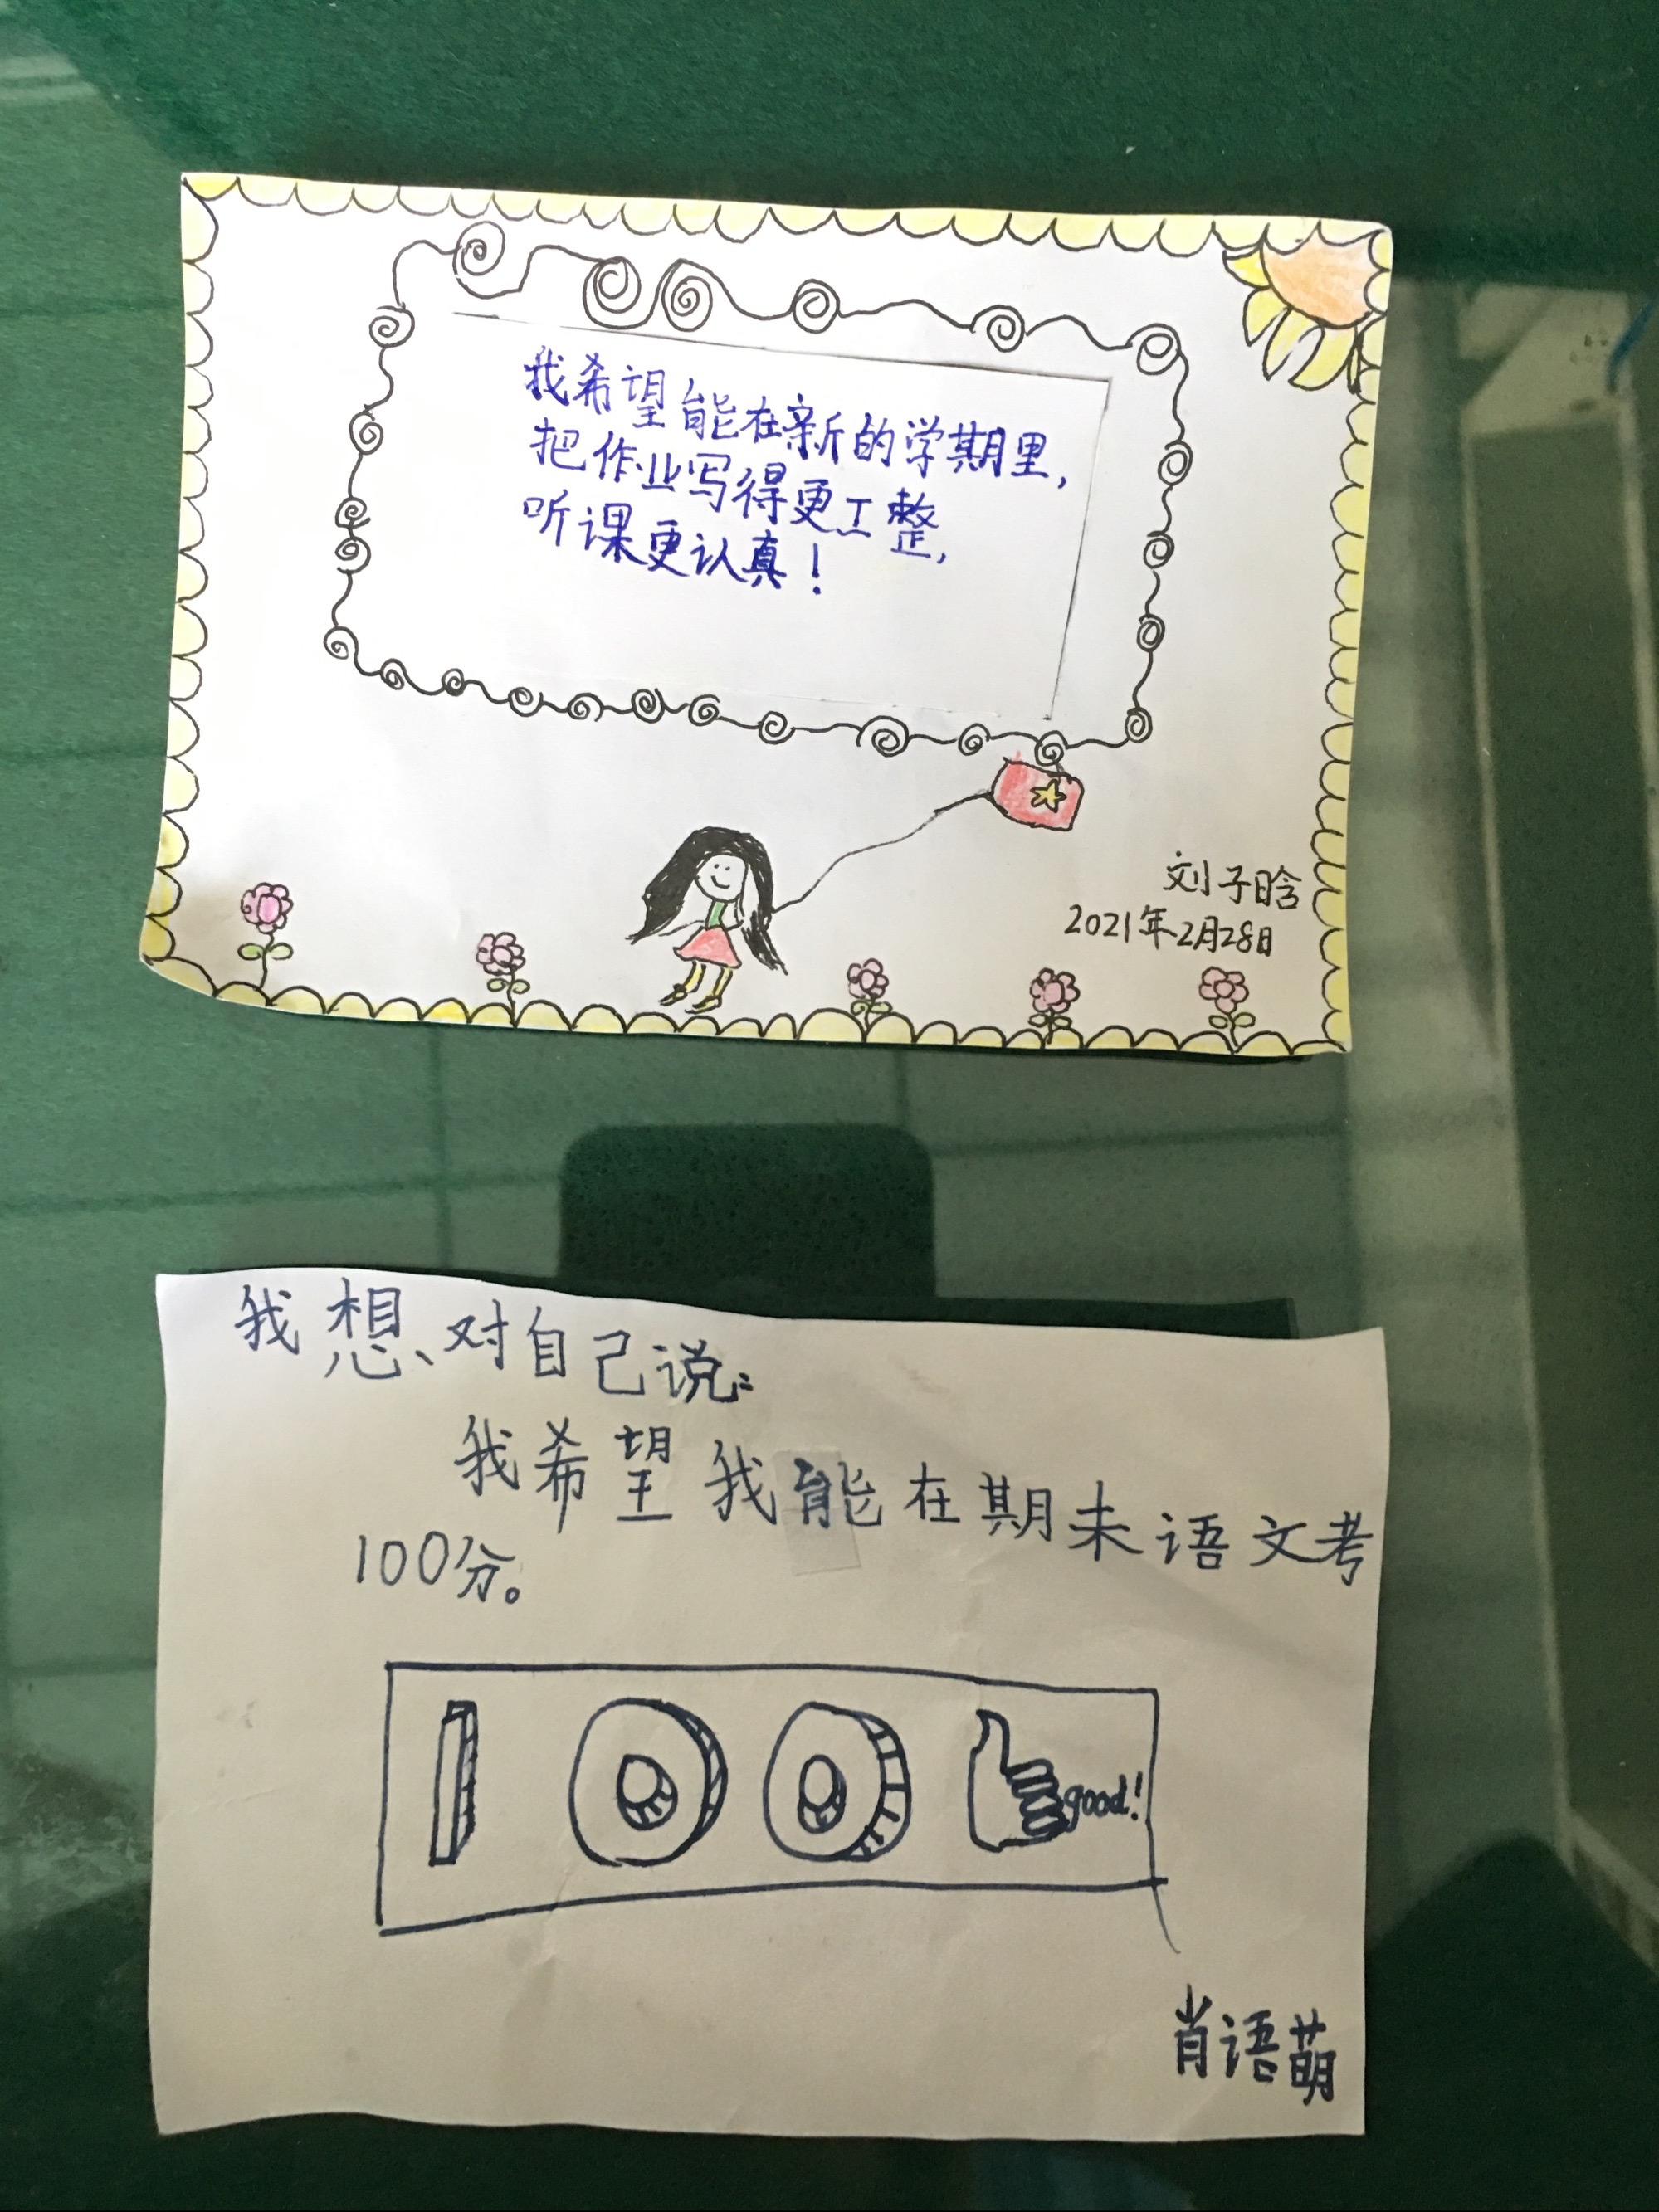 我希望能在新的学期里，
把作业写得更工整，
听课更认真！
刘子晗
2021年2月28日
我想对自己说：
我希望我能在期末语文考
100分。
100 good!
肖语萌